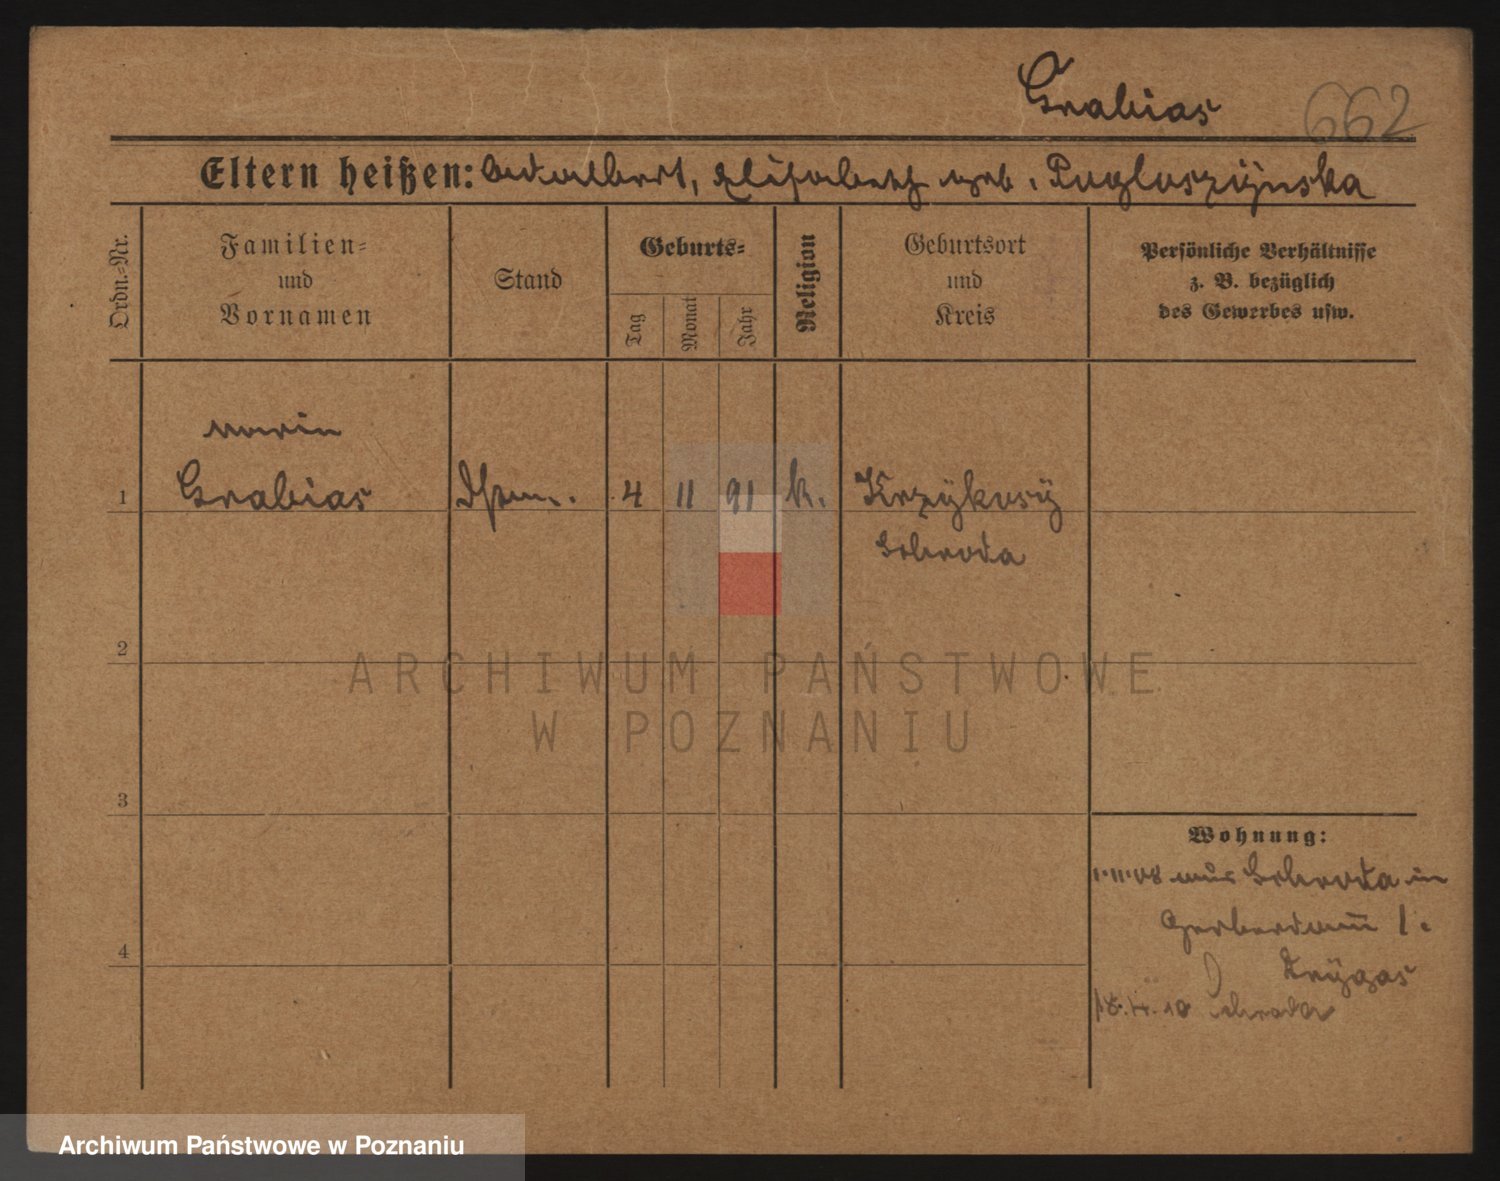 Grabias 662
Eltern heißen: Adalbert, Elisabeth geb.
Ordn.=Nr.
Familien=
und
Vornamen
Stand
Geburts=
Tag
Monat
Jahr
Religion
Geburtsort
und
Kreis
Persönliche Verhältnisse
z. B. bezüglich
des Gewerbes usw.
Marie
1 Grabias 4 11 91 k. Krzykosy
Schroda
2
3
4
Wohnung:
1.11.08 aus Schroda in
Gerberdamm 1.
18.4.10 Schroda
ARCHIWUM PAŃSTWOWE
W POZNANIU
Archiwum Państwowe w Poznaniu